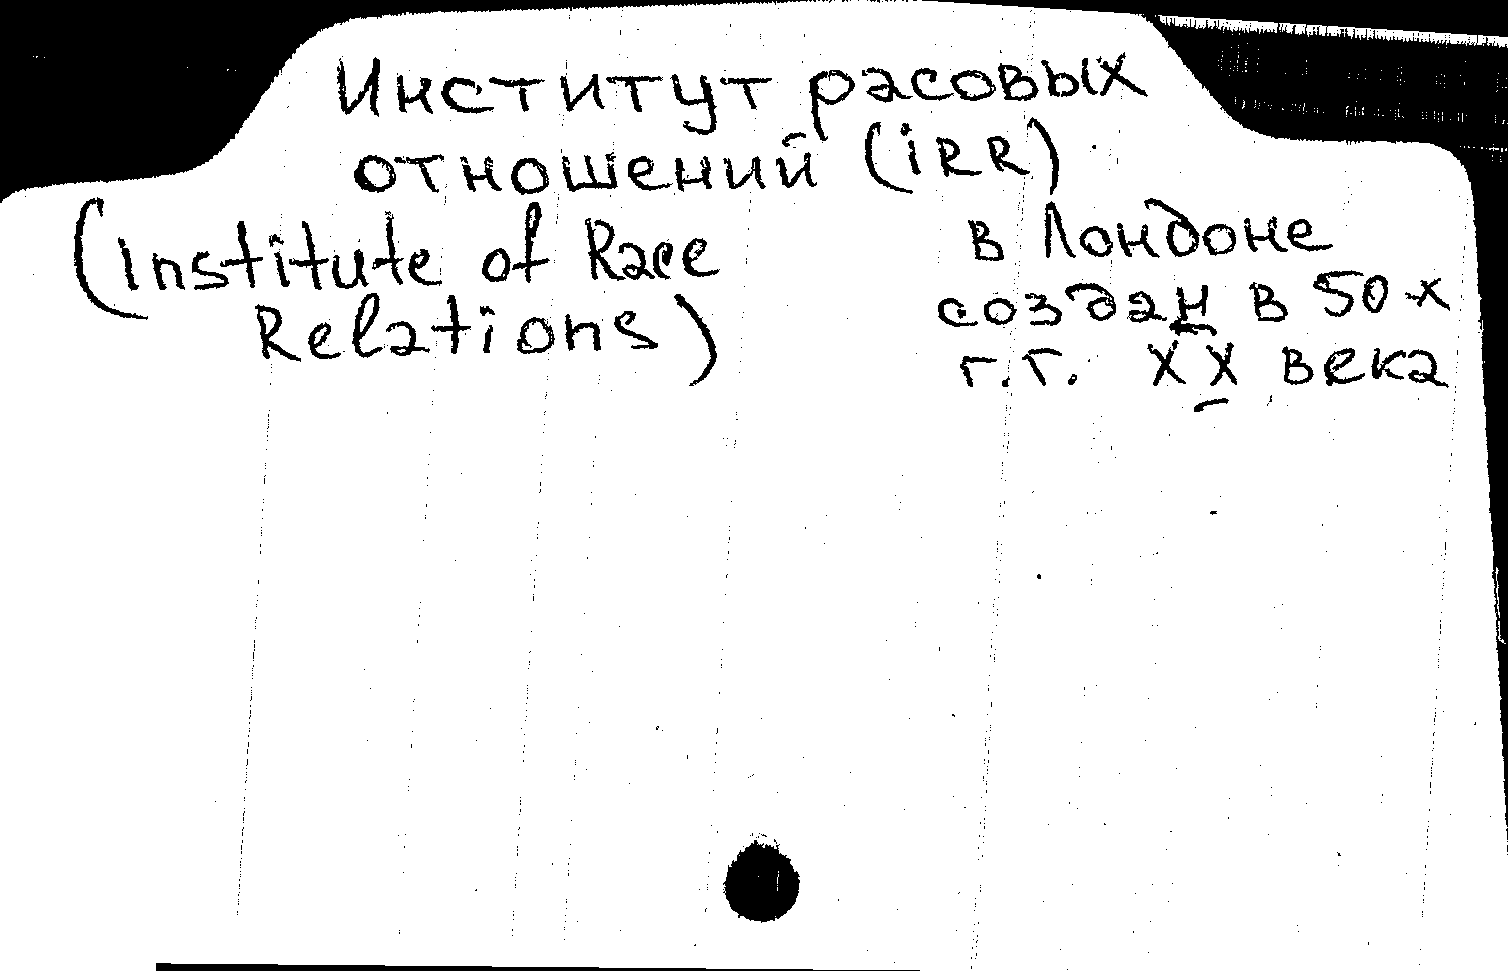 Институт расовых
отношений (iRR)
(Institute of Race
Relations)
в Лондоне
создан в 50-х
г.г. XX века